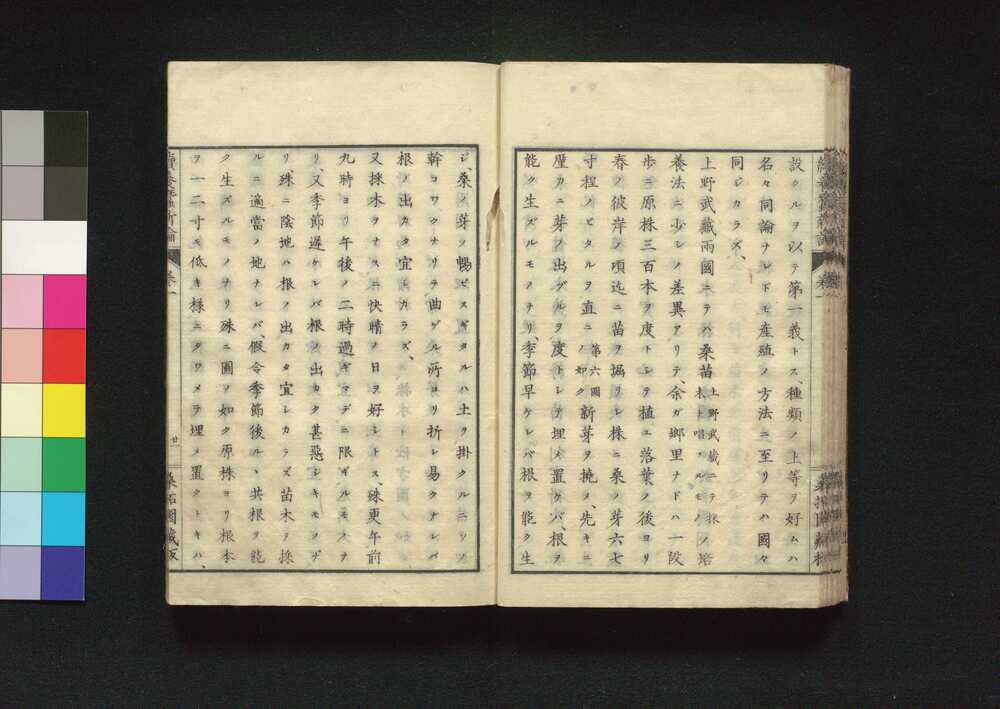 設クルヲ以テ第一義トス、種類ノ上等ヲ好ムハ
名々同論ナレドモ産殖ノ方法ニ至リテハ國々
同ジカラズ、
上野武藏兩國ニテハ桑苗上野武藏ニテ採木ト唱フルモノノ培
養法ニ少シノ差異アリテ、余ガ郷里ナドハ一段
歩ニ原株三百本ヲ度トシテ植ユ落葉ノ後ヨリ
春ノ彼岸ノ頃迄ニ苗ヲ堀リレ株ニ桑ノ芽六七
寸程ノビタルヲ直ニ第六圖ノ如ク新芽ヲ撓メ、先キニ
壓カニ芽ノ出ヅルヲ度トレテ埋メ置ケバ、根ヲ
能ク生ズルモノナリ、季節早ケレバ根ヲ能ク生
ジ、桑ノ芽ノ暢ビスギタルハ土ヲ掛クルニ
幹コワクナリテ曲ゲル所ヨリ折レ易クナレバ
根ノ出カタ宜シカラズ、
又採木ヲナスニ快晴ノ日ヲ好レトス、殊更午前
九時ヨリ午後ノ二時過ギマデニ限ギルモノヲ
リ、又季節遲ケレバ根ノ出カタ甚惡シキモノゾ
リ殊ニ陰地ハ根ノ出カタ宜レカラズ苗木ヲ採
ルニ適當ノ地ナレバ假令季節後ルヽ共根ヲ能
ク生ズルモノナリ殊ニ圖ノ如ク原株ヨリ根本
ヲ一二寸モ低キ樣ニタワメテ埋メ置クトキハ、
續養蠶新論
卷一
廿一
桑柘園藏版